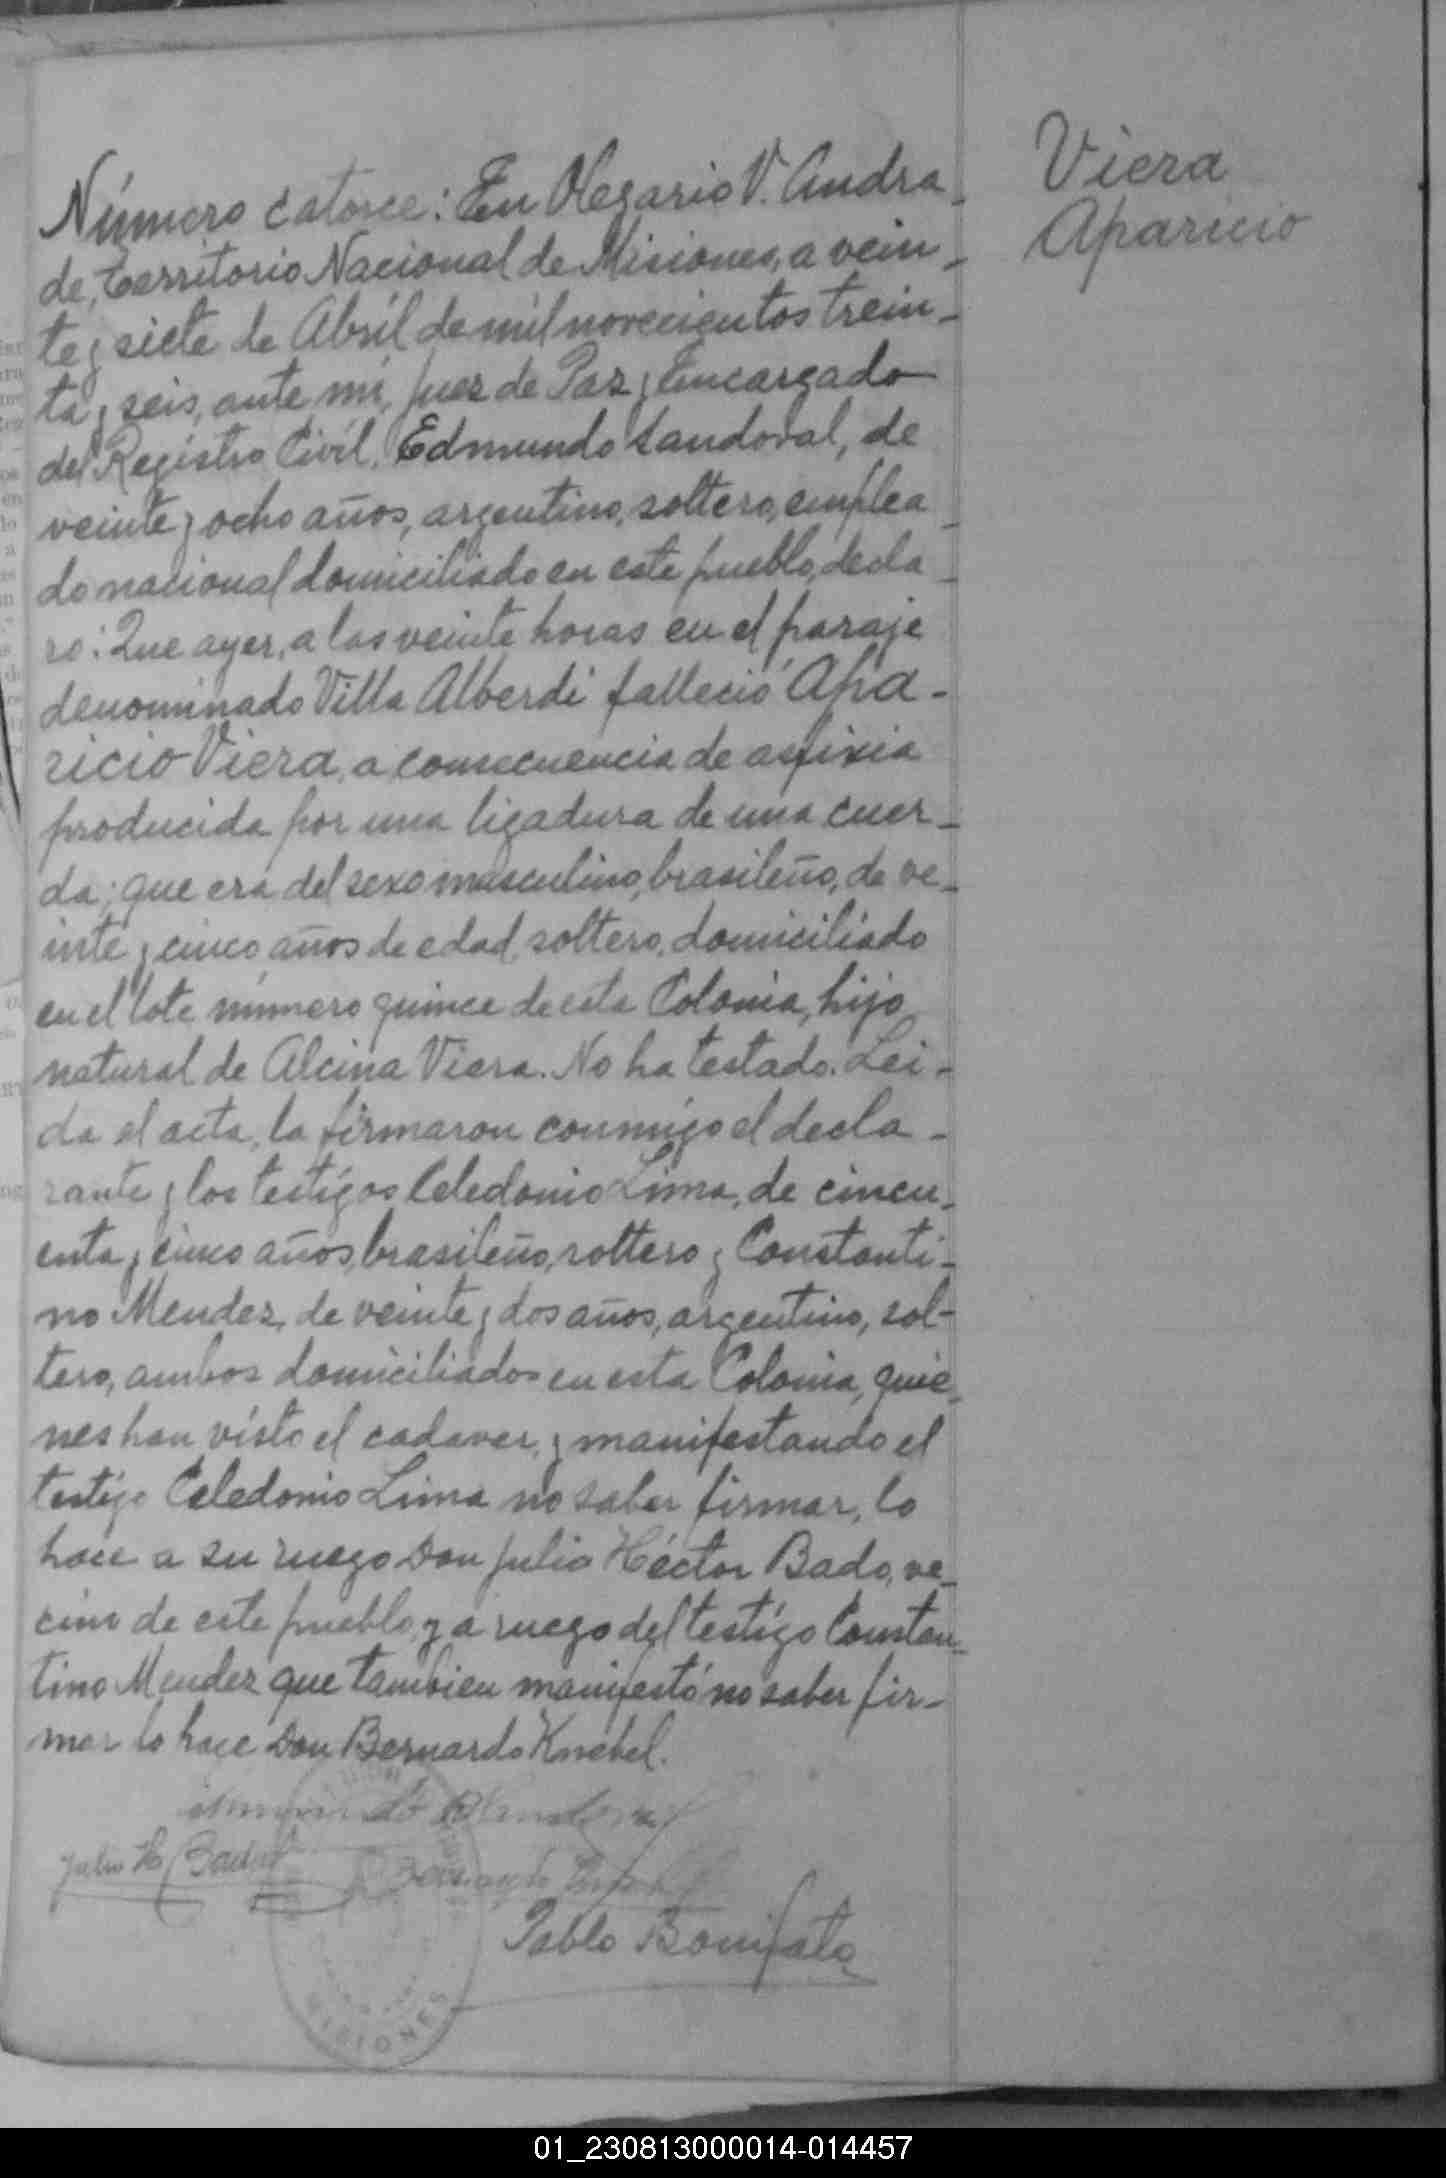 Viera
Aparicio
Número catorce: En Olegario V. Andra-
de, territorio Nacional de Misiones, a vein-
te y siete de Abríl de mil novecientos trein-
ta y seis, ante mí, Juez de Paz y Encargado
del Regístro Civíl, Edmundo Sandoval, de
veinte y ocho años, argentino, soltero, emplea-
do nacional domiciliado en este pueblo, decla-
ró: Que ayer, a las veinte horas en el paraje
denominado Villa Alberdi falleció Apa-
ricio Viera, a consecuencia de asfixia
producida por una ligadura de una cuer-
da; que era del sexo masculino, brasileño, de ve-
inte y cinco años de edad, soltero, domiciliado
en el lote número quince de esta Colonia, hijo
natural de Alcina Viera. No ha testado. Leí-
da el acta, la firmaron conmigo el decla-
rante y los testígos Celedonio Lima, de cincu-
enta y cinco años, brasileño, soltero y Constanti-
no Mendez, de veinte y dos años, argentino, sol-
tero, ambos domiciliados en esta Colonia, quie-
nes han vísto el cadaver, y manifestando el
testígo Celedonio Lima no saber firmar, lo
hace a su ruego Don Julio Héctor Bado, ve-
cino de este pueblo y a ruego del testígo Constan-
tino Mendez que tambien manifestó no saber fir-
mar lo hace Don Bernardo Knebel.
Julio H. Bado
Bernardo
Pablo Bonifato
MISIONES
01_230813000014-014457